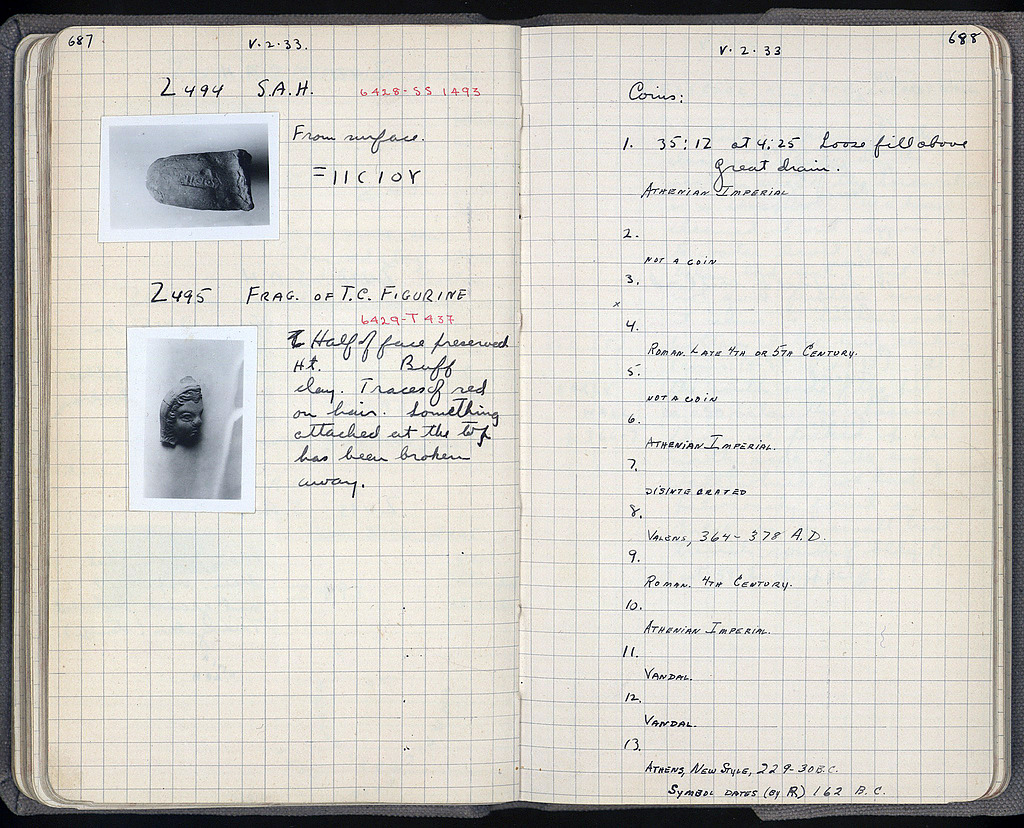 687
V·2·33.
Z 494 S.A.H. 6428-SS 1493
From surface.
Z 495 FRAG. OF T.C. FIGURINE
6429-T 437
Half of face preserved
Ht. Buff
clay. Traces of red
on hair. Something
attached at the top
has been broken
away.
688
V·2·33
Coins:
1. 35:12 at 4:25 Loose fill above
Great drain.
ATHENIAN IMPERIAL
2.
NOT A COIN
3.
x
4.
ROMAN. LATE 4TH OR 5TH CENTURY.
5.
NOT A COIN
6.
ATHENIAN IMPERIAL.
7.
DISINTEGRATED
8.
VALENS, 364-378 A.D.
9.
ROMAN. 4TH CENTURY.
10.
ATHENIAN IMPERIAL.
11.
VANDAL.
12.
VANDAL.
13.
ATHENS, NEW STYLE, 229-30 B.C.
SYMBOL DATES (BY R) 162 B.C.